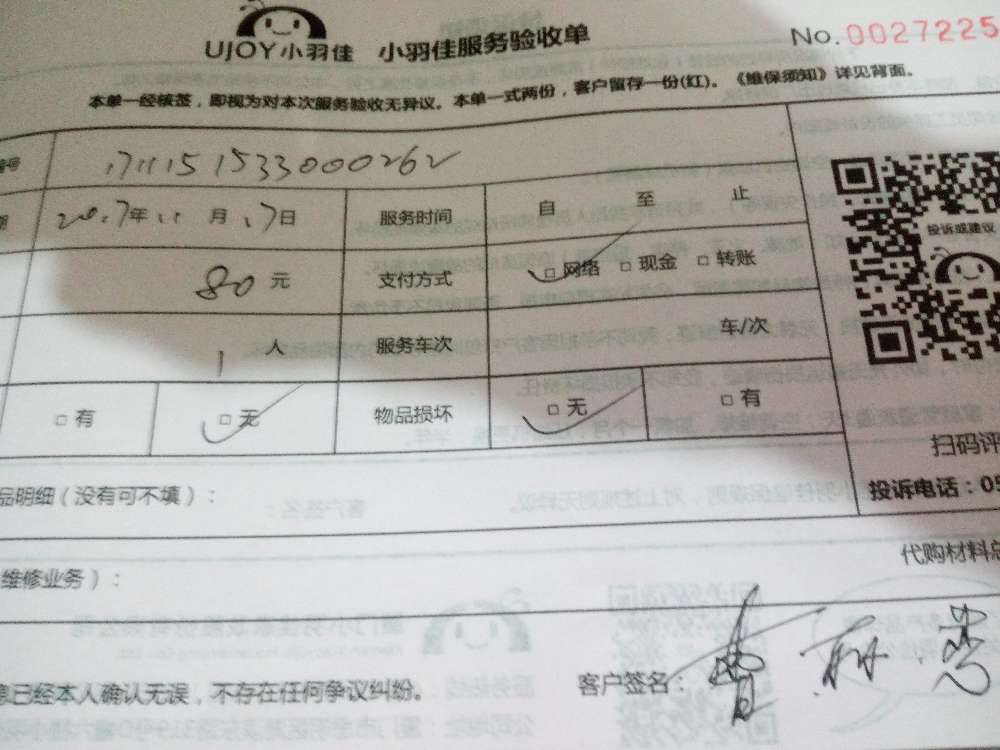 UJOY小羽佳 小羽佳服务验收单 No. 0027225
本单一经核签，即视为对本次服务验收无异议。本单一式两份，客户留存一份(红)。《维保须知》详见背面。
号 1711151533000262
期 2017年11月17日 服务时间 自 至 止
投诉或建议
80元 支付方式 □网络 □现金 □转账
1人 服务车次 车/次
□有 □无 物品损坏 □无 □有
扫码评
品明细（没有可不填）：
投诉电话：05
代购材料总
维修业务）：
息已经本人确认无误，不存在任何争议纠纷。 客户签名：